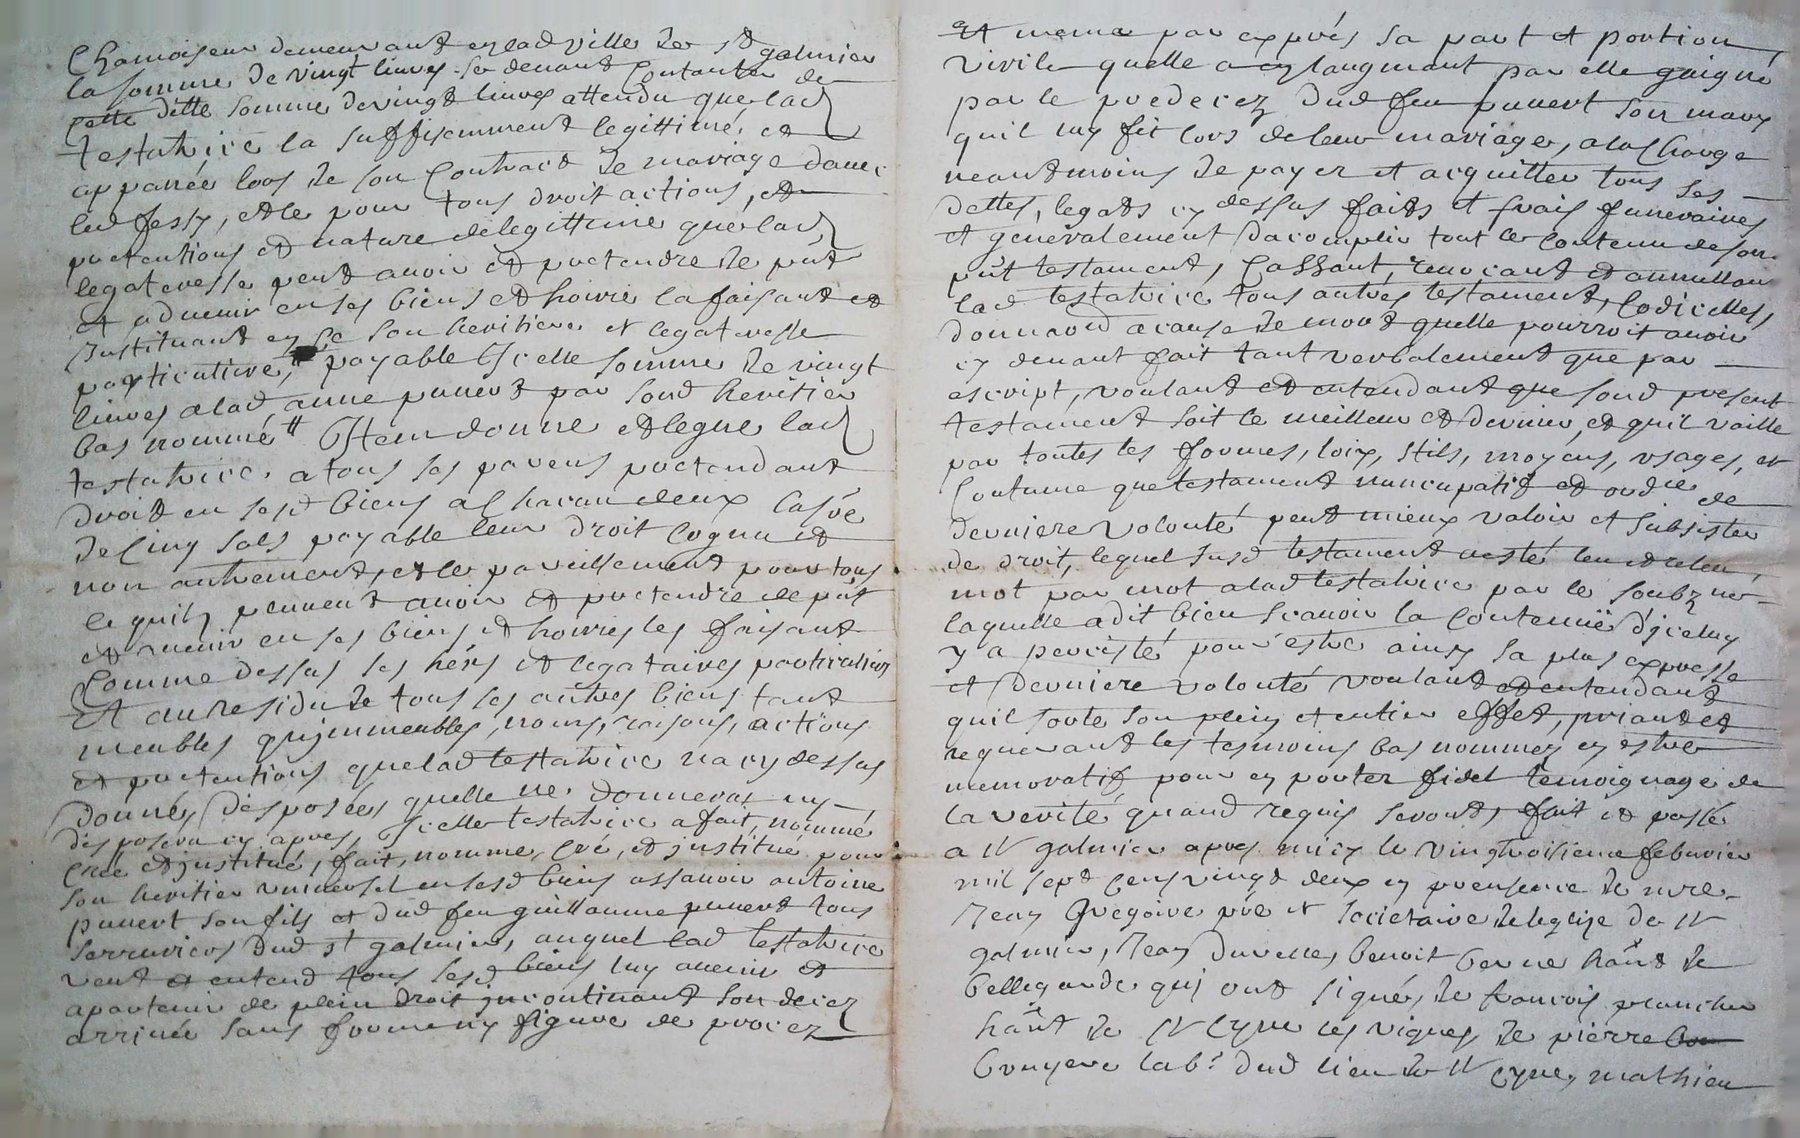 Chamoiseur demeurant en lad ville de st galmier
la somme de vingt livres se devant Contanter de
cette ditte somme de vingt livres attendu que lad
testatrice la suffisemment legittimé et
appanée lors de son Contract de mariage avec
led fessy, et le pour tous droit actions, et
pretentions et nature de legittime que lad
legateresse peut avoir et pretendre de pnt
et advenir en ses biens et hoirie la faisant et
Instituant en ce son heritiere et legateresse
particuliere, payable Icelle somme de vingt
livres a lad anne punert par sond heritier
bas nommé Item donne et legue lad
testatrice a tous ses parens pretendant
droit en sesd biens a Chacun deux
de Cinq sols payable leur droit Cognu et
non autrement, et le pareillement pour tous
ce quilz peuvent avoir et pretendre de pnt
et avenir en ses biens et hoiries les faisant
Comme dessus ses hérs et legataires particuliers
Et au residu de tous ses autres biens tant
meubles qu'immeubles, noms, raisons, actions
et pretentions que lad testatrice na cy dessus
donnés, desposées quelle ne donneras ny
desposera cy apres, Icelle testatrice a fait, nommé
créé et institué, fait, nomme, cré, et institue pour
son heritier universel en sesd biens assavoir antoine
punert son fils et dud feu guillaume punert tous
serruriers dud st galmier, auquel lad testatrice
veut et entend tous sesd biens luy avenir et
apartenir de plein droit incontinant son decez
arrivée sans forme ny figure de procez
Et meme par exprés sa part et portion
virile quelle a en laugmant par elle gaigné
par le predecez dud feu punert son mary
quil luy fit lors de leur mariage, a la Charge
neantmoins de payer et acquitter tous ses
dettes, legats cy dessus faits et frais funeraires
et generalement dacomplir tout le Contenu de son
pnt testament, Cassant, revocant et annullant
lad testatrice tous autres testament, Codicelles,
donnaon a cause de mort quelle pourroit avoir
cy devant fait tant verbalement que par
escript, voulant et entendant que sond present
testament soit le meilleur et dernier, et quil vaille
par toutes les formes, loix, stils, moyens, usages, et
Coutume que testament nuncupatif et ordre de
derniere volonté peut mieux valoir et subsister
de droit, lequel susd testament a esté leu et releu
mot par mot a lad testatrice par le soubz ne
laquelle a dit bien scavoir la Contenüe d'iceluy
y a percisté pour estre ainsy sa plus expresse
et derniere volonté voulant et entendant
quil sorte son plein et entier effet, priant et
requerant les tesmoins bas nommés en estre
memoratif pour en porter fidel temoignage de
la verité quand requis seront, fait et passé
a st galmier apres midy le vingtroisieme febvrier
mil sept Cens vingt deux en presence de mre
Jean Gregoire pre et societaire de leglize de st
galmier, Jean benoit hant de
bellegarde qui ont signés, de francois plancher
hant de st Cyre les vignes, de pierre
bruyere lab.r dud lieu de st Cyre, mathieu